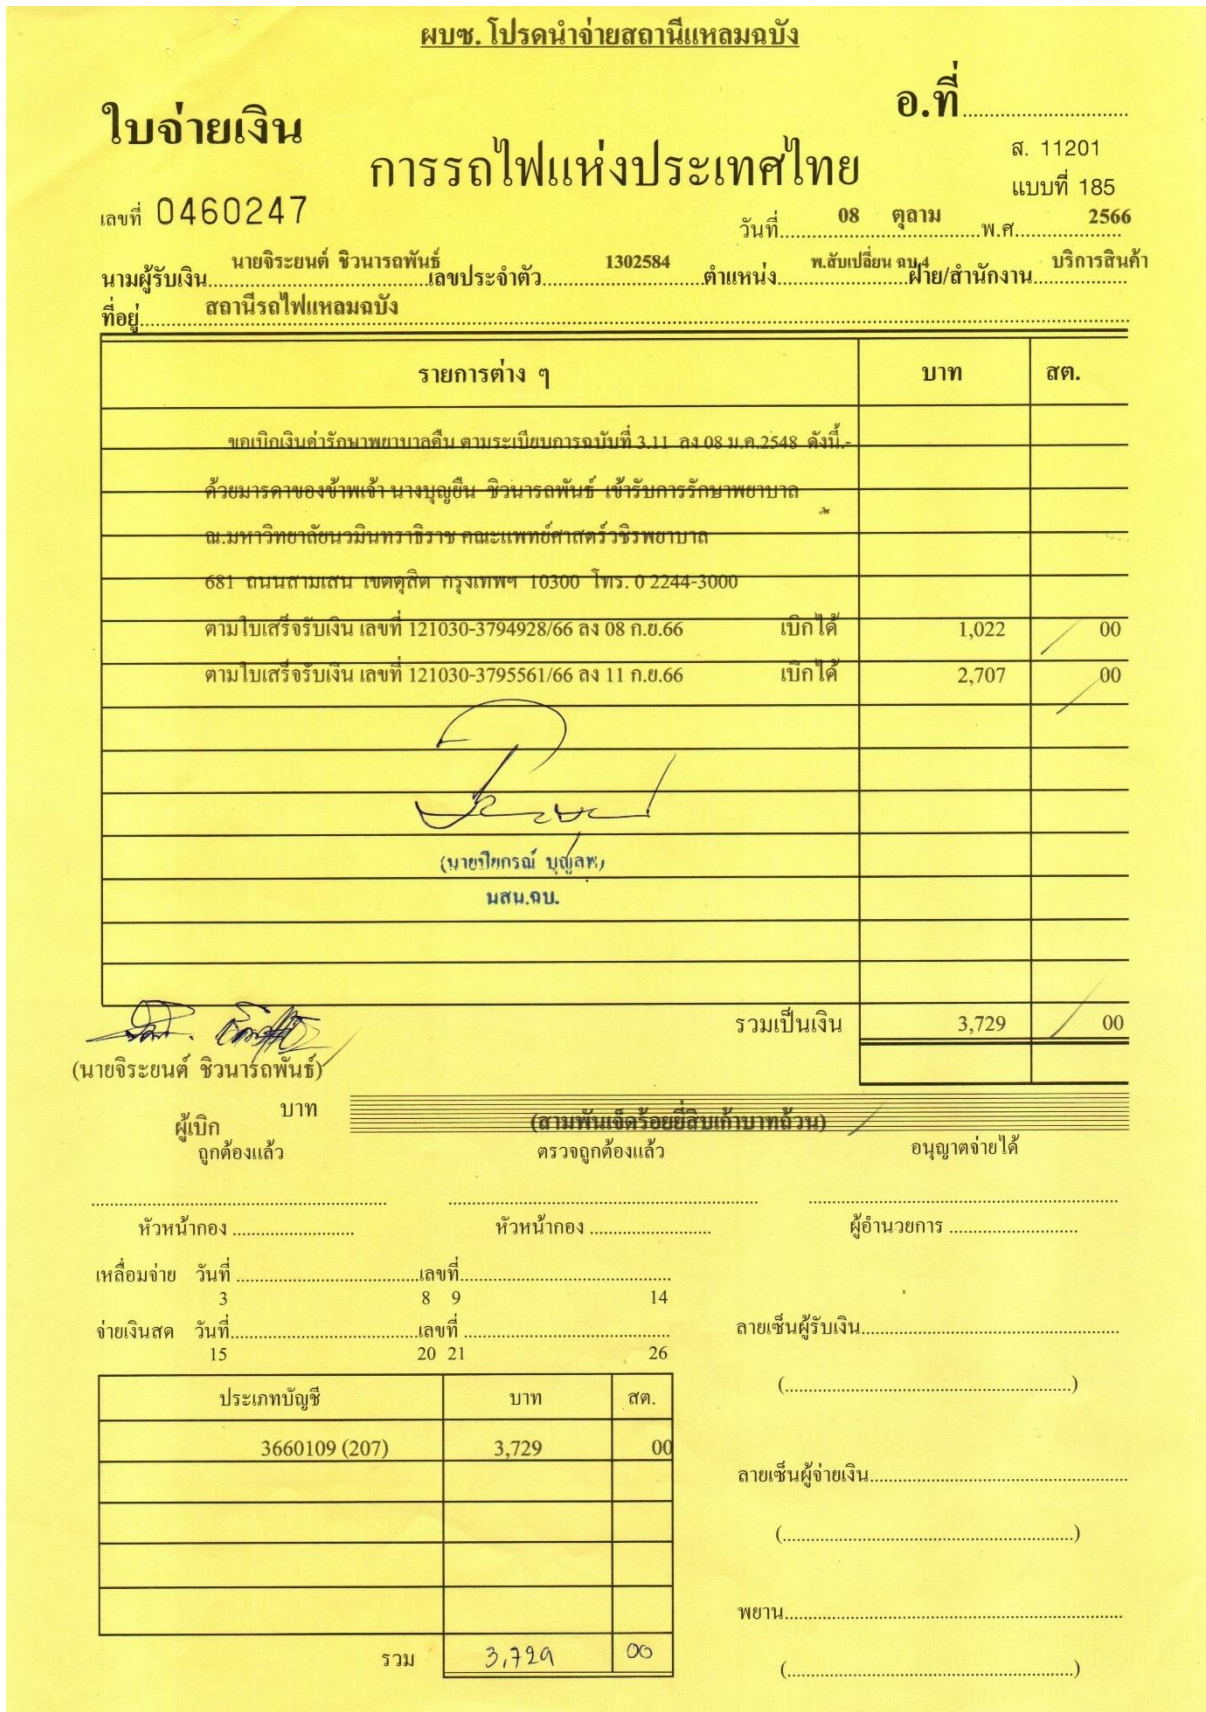 ผบซ. โปรดนำจ่ายสถานีแหลมฉบัง
อ.ที่
ใบจ่ายเงิน
การรถไฟแห่งประเทศไทย
ส. 11201
แบบที่ 185
เลขที่ 0460247
วันที่ 08 ตุลาม พ.ศ. 2566
นามผู้รับเงิน นายจิระยนต์ ชิวนารถพันธ์ เลขประจำตัว 1302584 ตำแหน่ง พ.สับเปลี่ยน ฉบ.4 ฝ่าย/สำนักงาน บริการสินค้า
ที่อยู่ สถานีรถไฟแหลมฉบัง
รายการต่าง ๆ บาท สต.
ขอเบิกเงินค่ารักษาพยาบาลคืน ตามระเบียบการฉบับที่ 3.11 ลง 08 ม.ค.2548 ดังนี้.-
ด้วยมารดาของข้าพเจ้า นางบุญยืน ชิวนารถพันธ์ เข้ารับการรักษาพยาบาล
ณ.มหาวิทยาลัยนวมินทราธิราช คณะแพทย์ศาสตร์วชิรพยาบาล
681 ถนนสามเสน เขตดุสิต กรุงเทพฯ 10300 โทร. 0 2244-3000
ตามใบเสร็จรับเงิน เลขที่ 121030-3794928/66 ลง 08 ก.ย.66 เบิกได้ 1,022 00
ตามใบเสร็จรับเงิน เลขที่ 121030-3795561/66 ลง 11 ก.ย.66 เบิกได้ 2,707 00
(นายปิยกรณ์ บุญลพ)
นสน.ฉบ.
รวมเป็นเงิน 3,729 00
(นายจิระยนต์ ชิวนารถพันธ์)
บาท (สามพันเจ็ดร้อยยี่สิบเก้าบาทถ้วน)
ผู้เบิก
ถูกต้องแล้ว ตรวจถูกต้องแล้ว อนุญาตจ่ายได้
หัวหน้ากอง หัวหน้ากอง ผู้อำนวยการ
เหลื่อมจ่าย วันที่ เลขที่
3 8 9 14
จ่ายเงินสด วันที่ เลขที่ ลายเซ็นผู้รับเงิน
15 20 21 26
(....)
ประเภทบัญชี บาท สต.
3660109 (207) 3,729 00
ลายเซ็นผู้จ่ายเงิน
(....)
พยาน
รวม 3,729 00
(....)